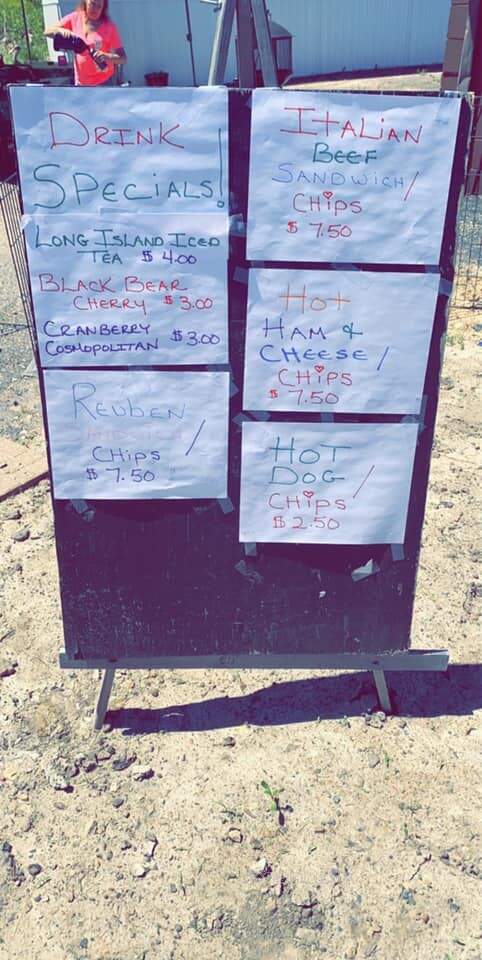 DRINK
SPECIALS!
LONG ISLAND ICED
TEA $4.00
BLACK BEAR
CHERRY $3.00
CRANBERRY
COSMOPOLITAN $3.00
REUBEN
CHIPS /
$7.50
ITALIAN
BEEF
SANDWICH/
CHIPS
$7.50
HOT
HAM &
CHEESE/
CHIPS
$7.50
HOT
DOG/
CHIPS
$2.50